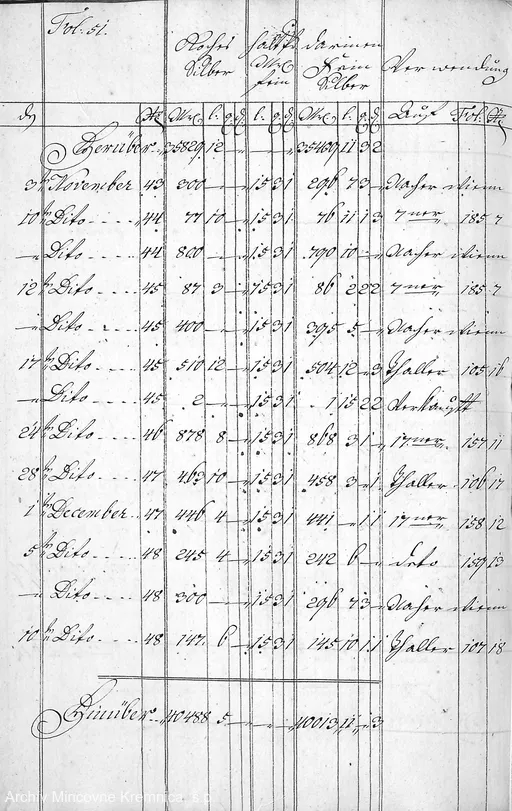 Fol. 51.
Roches Silber halt d. Mrc fein darinen Fein Silber Verwendung
dg Nr Mrc l. q. d l. q. d Mrc l. q. d Auf Fol. Nr
Herüber 35829 12 — — — 35409 11 3 2
3 November 43 300 — — 15 3 1 296 7 3 — Nacher Wienn
10 Dito 44 77 10 — 15 3 1 76 11 1 3 7ner 185 7
— Dito 44 800 — — 15 3 1 790 10 — Nacher Wienn
12 Dito 45 87 3 — 15 3 1 86 2 2 2 7ner 185 7
— Dito 45 400 — — 15 3 1 395 5 — Nacher Wienn
17 Dito 45 510 12 — 15 3 1 504 12 — 3 Thaller 105 16
— Dito 45 2 — — 15 3 1 1 15 2 2 Verkaufft
24 Dito 46 878 8 — 15 3 1 868 3 1 — 17ner 157 11
28 Dito 47 463 10 — 15 3 1 458 3 — 1 Thaller 106 17
1 December 47 446 4 — 15 3 1 441 — 1 1 17ner 158 12
5 Dito 48 245 4 — 15 3 1 242 6 — deto 159 13
— Dito 48 300 — — 15 3 1 296 7 3 — Nacher Wienn
10 Dito 48 147 6 — 15 3 1 145 10 1 1 Thaller 107 18
Hinüber 40488 5 — — — 40013 11 — 3
Archív Mincovne Kremnica, š.p.